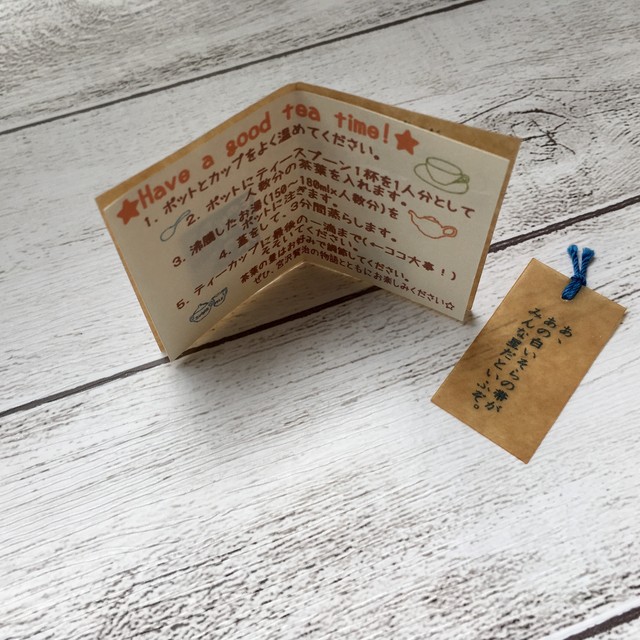 ★Have a good tea time!★
1. ポットとカップをよく温めてください。
2. ポットにティースプーン1杯を1人分として
人数分の茶葉を入れます。
3. 沸騰したお湯(150〜180ml×人数分)を
注ぎ
4. 蓋をして2〜3分間蒸らします。
5. ティーカップに最後の一滴まで(←ココ大事!)
茶葉の量はお好みで調整してください。
ぜひ、物語とともにお楽しみください☆
あ
あの白いそらの帯が
みんな星だといふぞ